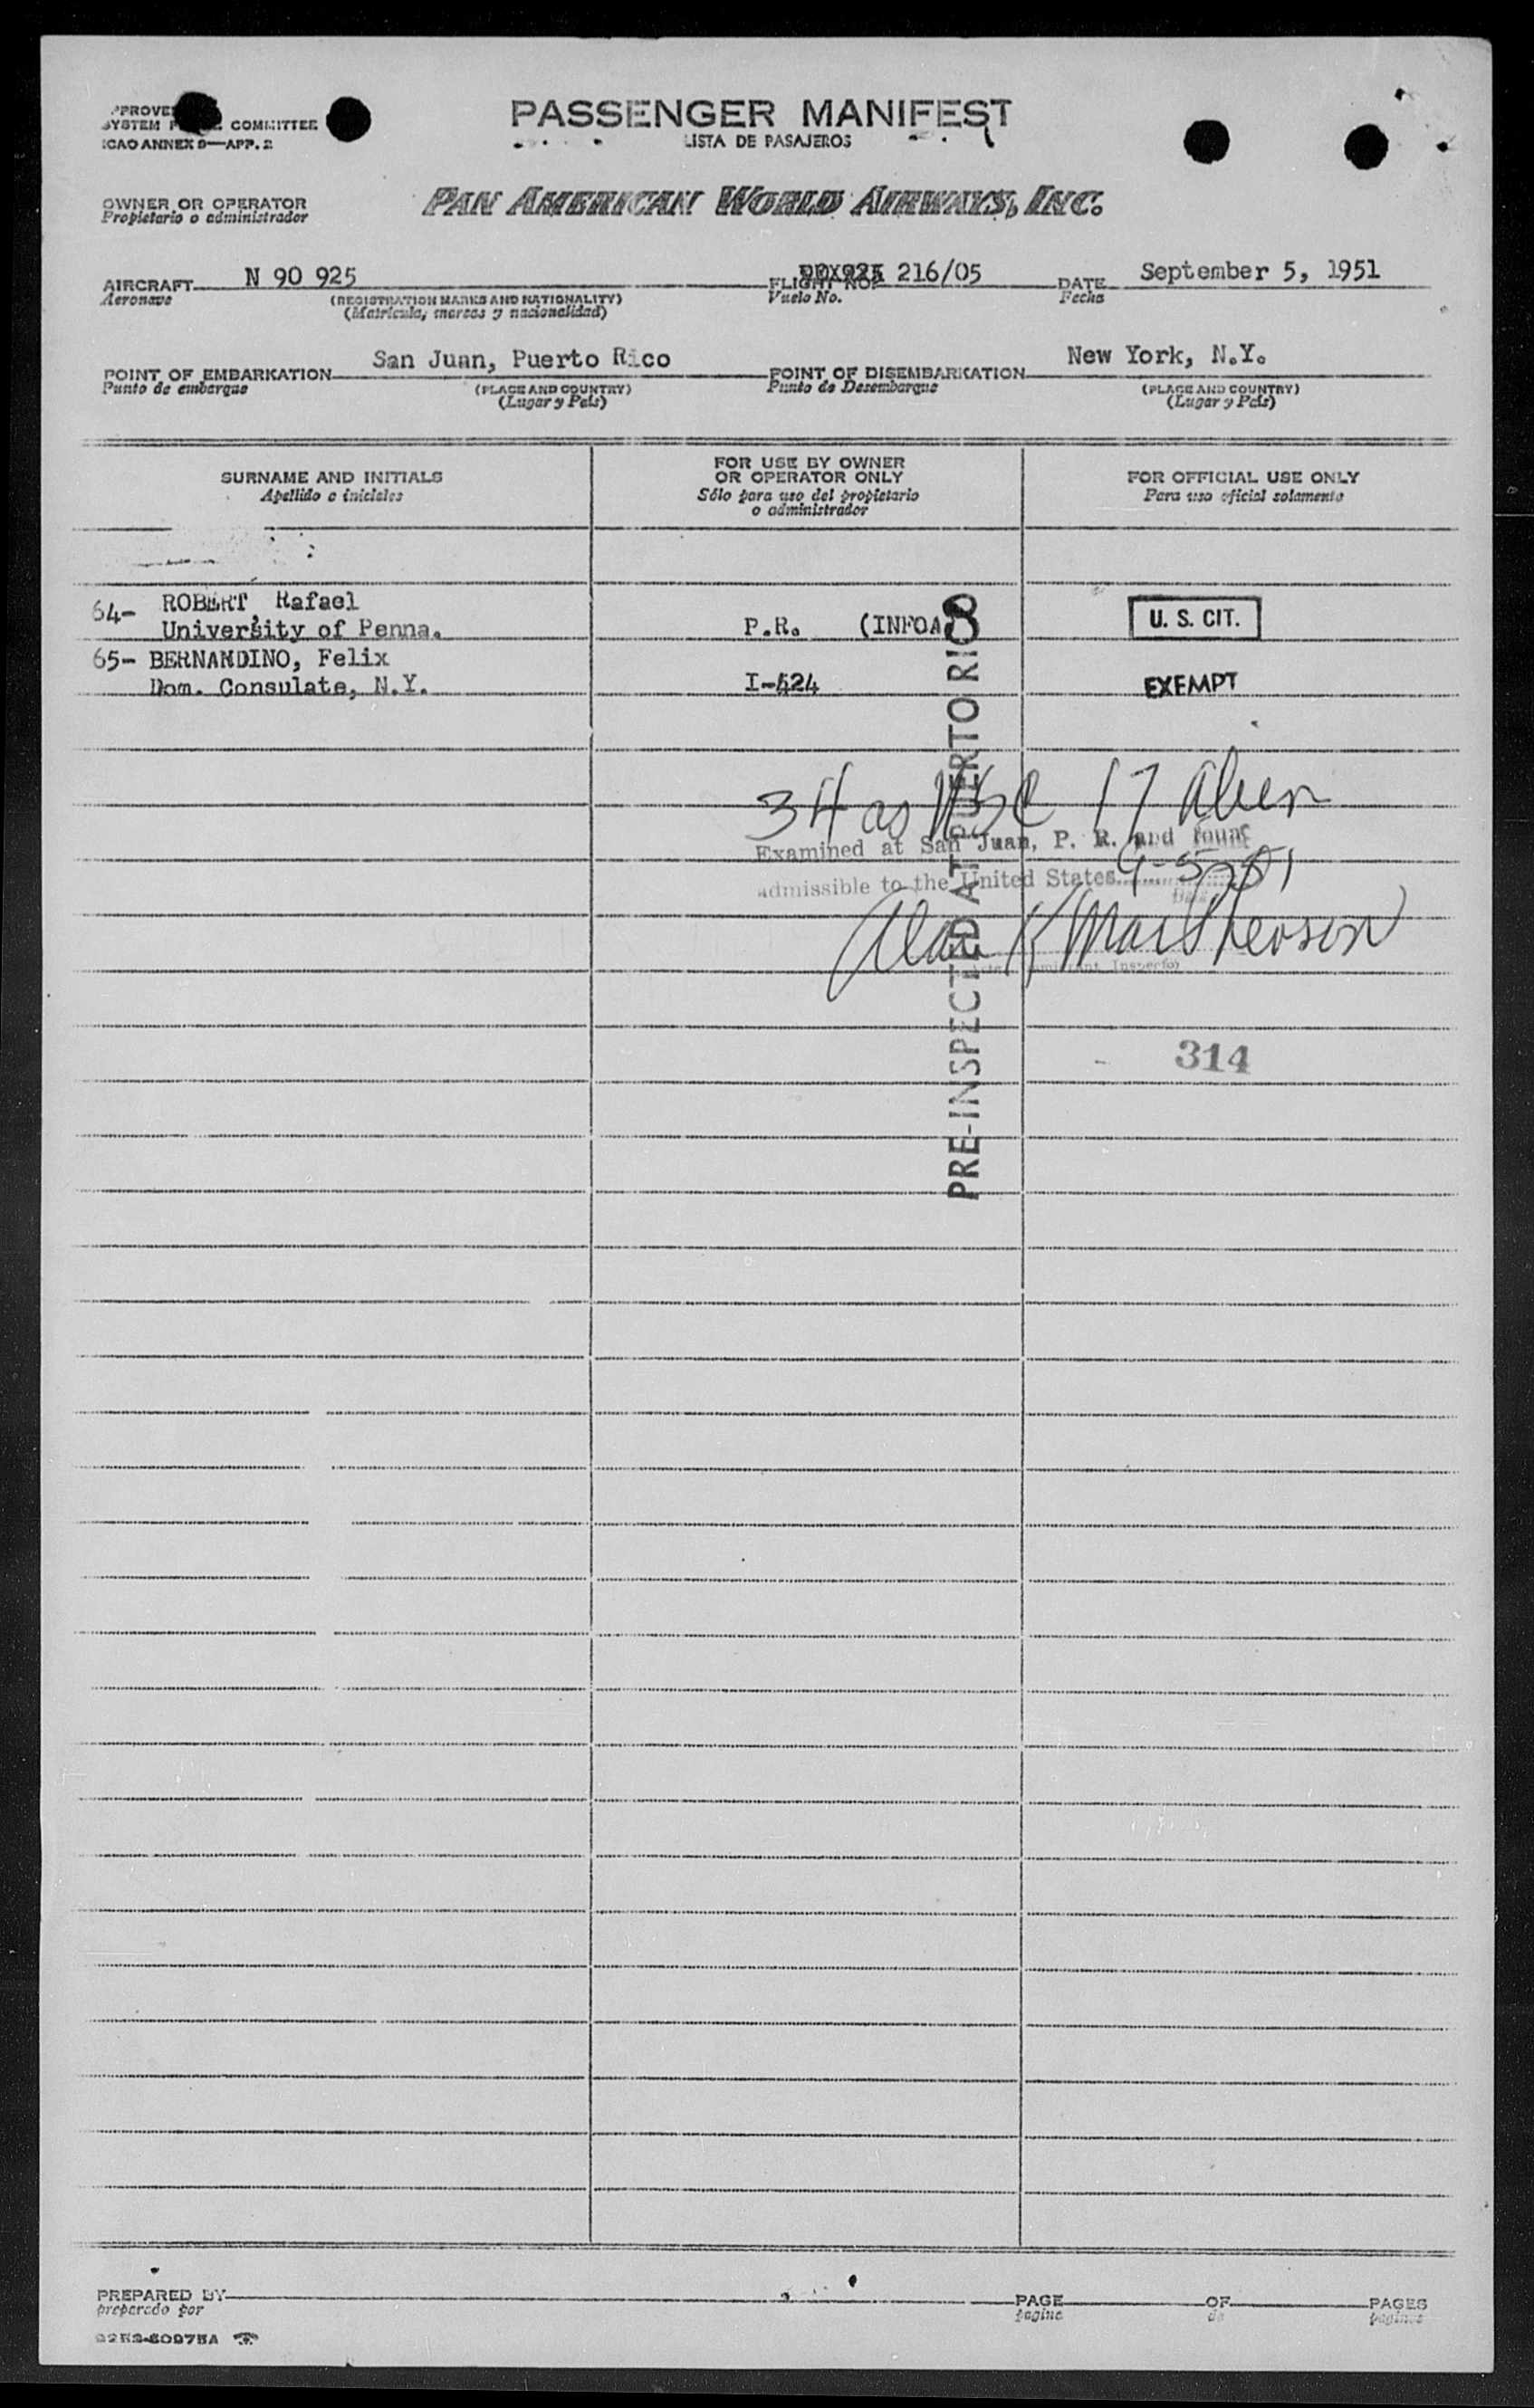 PASSENGER MANIFEST
LISTA DE PASAJEROS
COMMITTEE
ICAO ANNEX 9—APP. 2
OWNER OR OPERATOR
Propietario o administrador
PAN AMERICAN WORLD AIRWAYS, INC.
AIRCRAFT N 90 925 FLIGHT NO. 216/05 DATE September 5, 1951
Aeronave (REGISTRATION MARKS AND NATIONALITY) Vuelo No. Fecha
(Matricula, marcas y nacionalidad)
POINT OF EMBARKATION San Juan, Puerto Rico POINT OF DISEMBARKATION New York, N.Y.
Punto de embarque (PLACE AND COUNTRY) Punto de Desembarque (PLACE AND COUNTRY)
(Lugar y País) (Lugar y País)
SURNAME AND INITIALS
Apellido e iniciales
FOR USE BY OWNER
OR OPERATOR ONLY
Sólo para uso del propietario
o administrador
FOR OFFICIAL USE ONLY
Para uso oficial solamente
64- ROBERT, Rafael
University of Penna. P.R. (INFOA U. S. CIT.
65- BERNANDINO, Felix
Dom. Consulate, N.Y. I-424 EXEMPT
PRE-INSPECTED AT PUERTO RICO
34 as USC 17 alien
Examined at San Juan, P. R. and found
admissible to the United States 9-5-51
Date
Immigrant Inspector
314
PREPARED BY PAGE OF PAGES
preparado por pagina de paginas